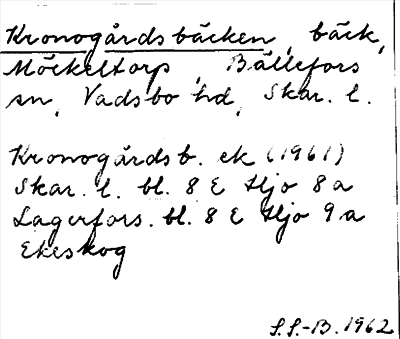 Kronogårdsbäcken, bäck,
Möckeltorp, Bällefors
sn, Vadsbo hd, Skar. l.
Kronogårdsb. ek (1961)
Skar. l. bl. 8 E Hjo 8 a
Lagerfors. bl. 8 E Hjo 9 a
Ekeskog
S.S.-B. 1962